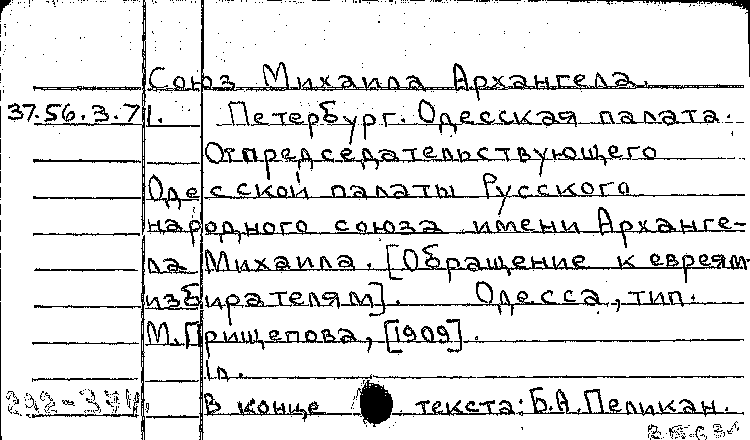 Союз Михаила Архангела.
37.56.3.71. Петербург. Одесская палата.
От председательствующего
Одесской палаты Русского
народного союза имени Арханге-
ла Михаила. [Обращение к евреям-
избирателям]. Одесса, тип.
М. Прищепова, [1909].
1 л.
В конце текста: Б.А. Пеликан.